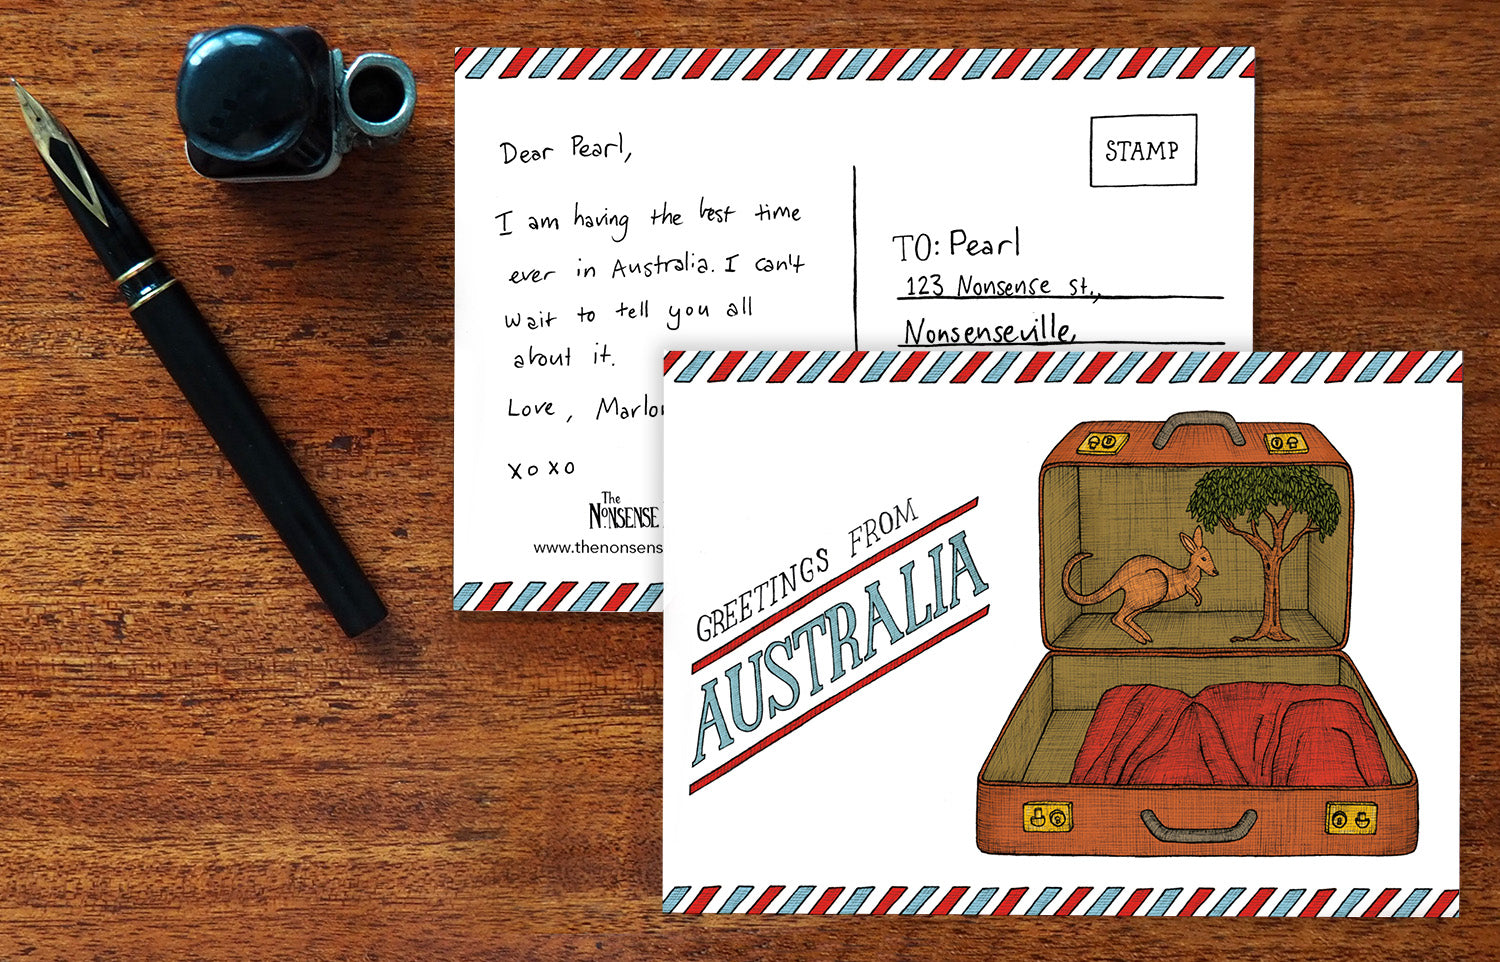 Dear Pearl,
I am having the best time
ever in Australia. I can't
wait to tell you all
about it.
Love, Marlo
xoxo
The
NONSENSE
www.thenonsens
STAMP
TO: Pearl
123 Nonsense st.,
Nonsenseville,
GREETINGS FROM
AUSTRALIA